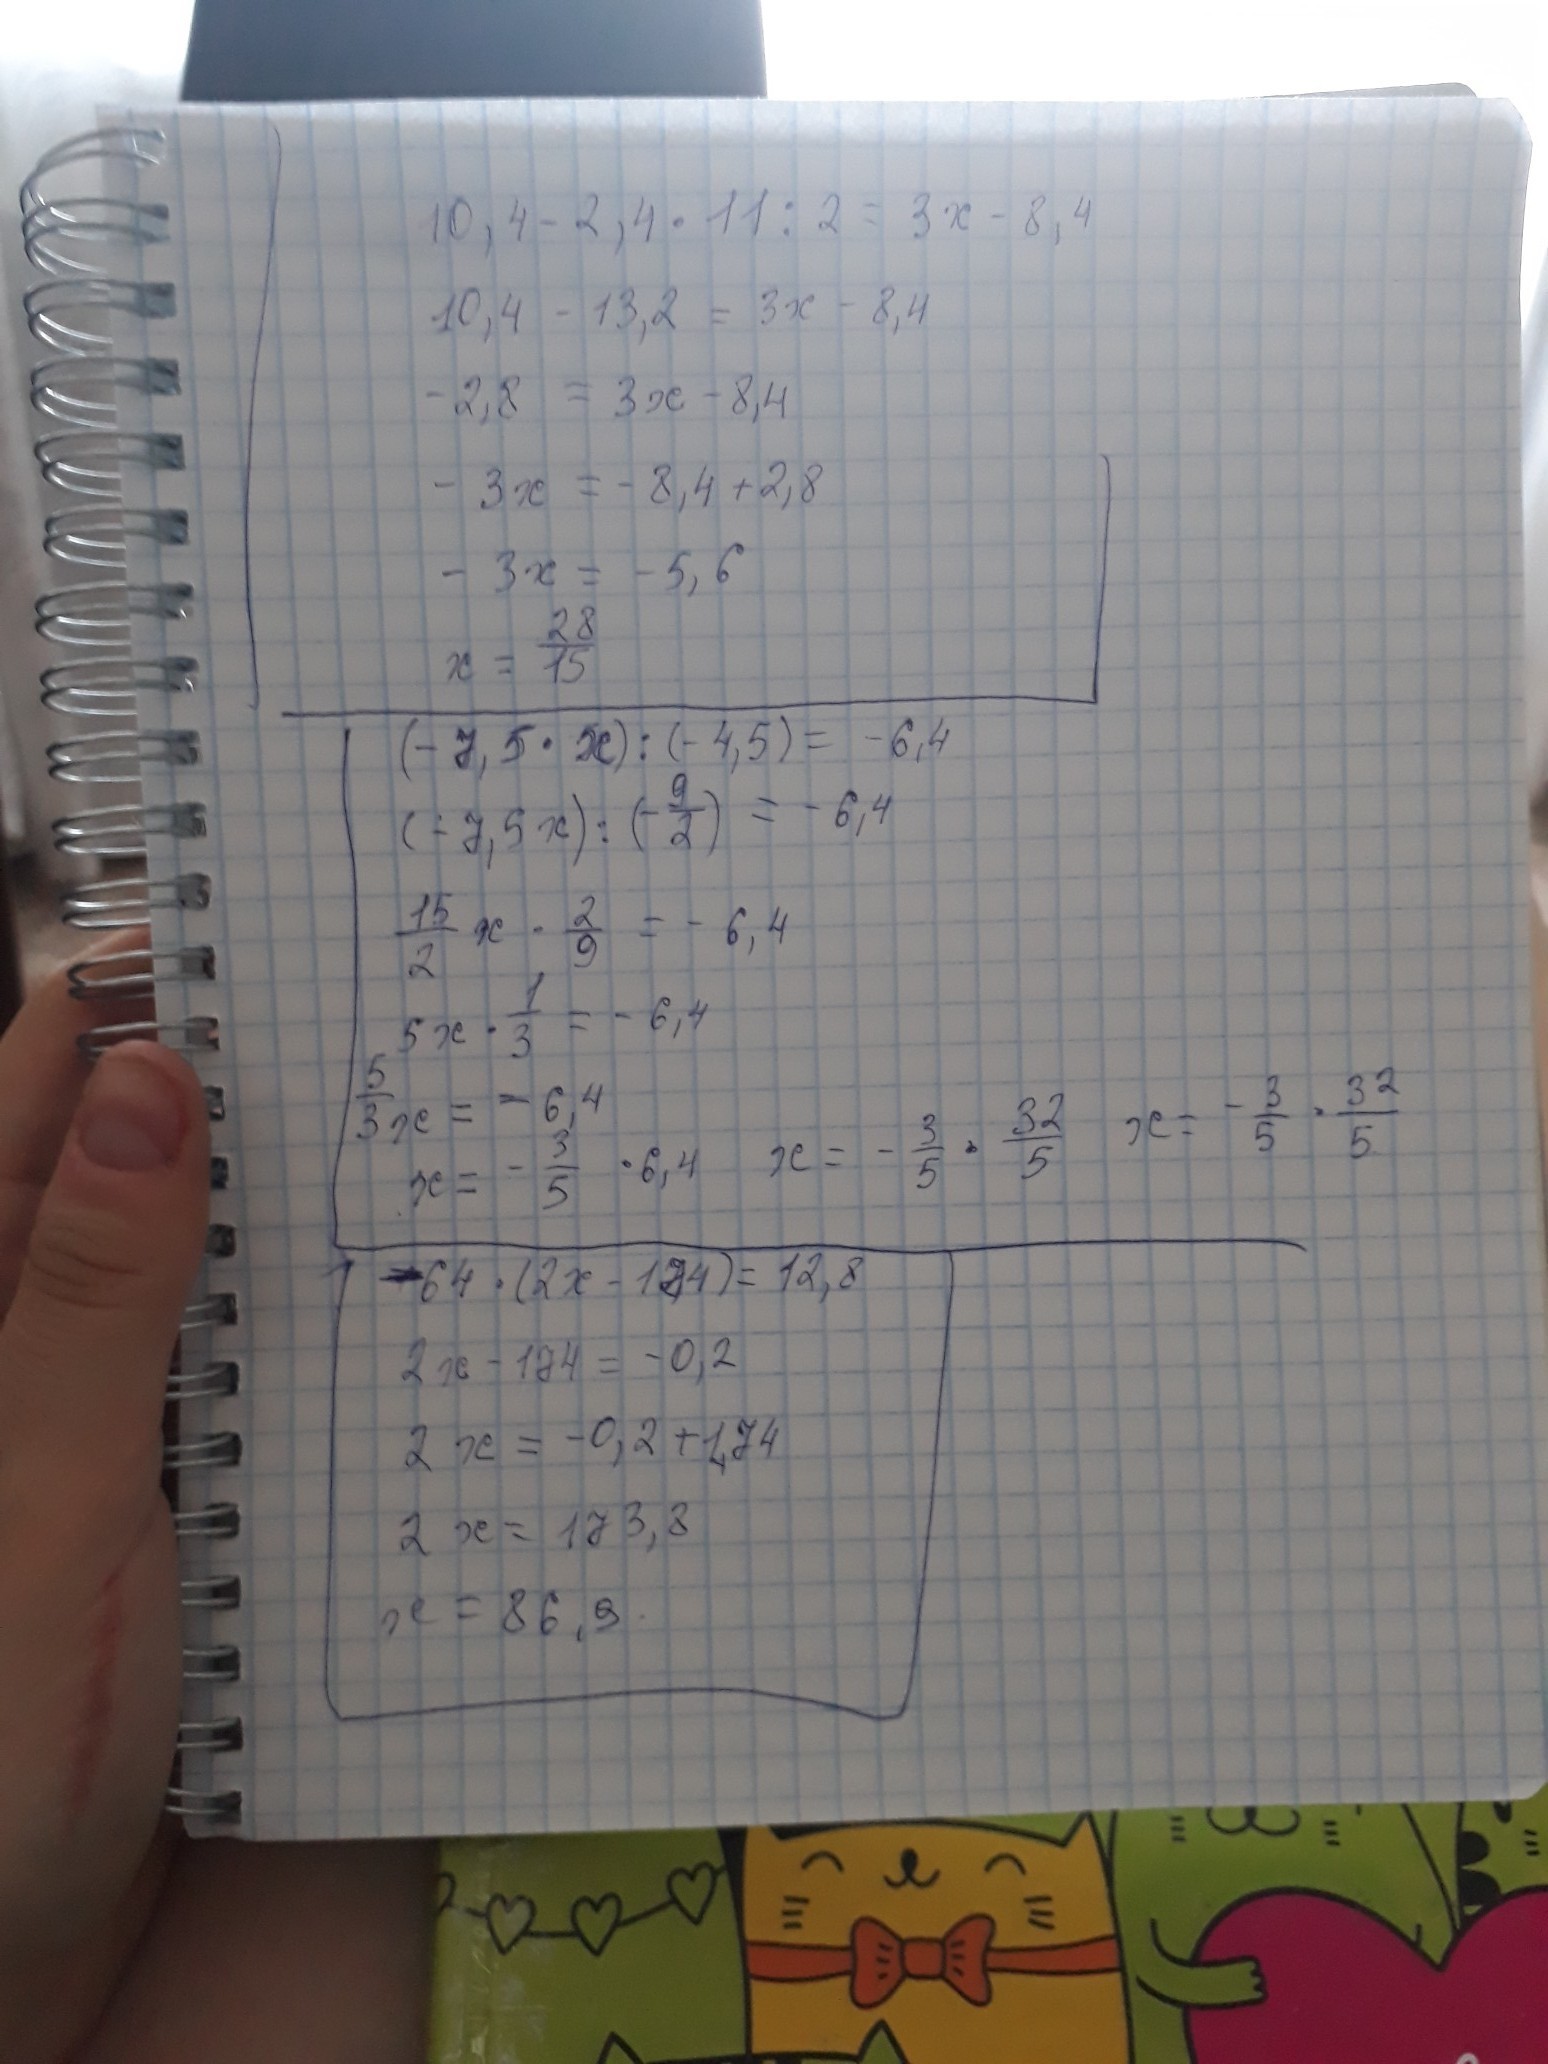 10,4 - 2,4 · 11 : 2 = 3x - 8,4
10,4 - 13,2 = 3x - 8,4
-2,8 = 3x - 8,4
- 3x = - 8,4 + 2,8
- 3x = - 5,6
x = 28/15
(- 7,5 · x) : (- 4,5) = - 6,4
(- 7,5x) : (- 9/2) = - 6,4
15/2 x · 2/9 = - 6,4
5x · 1/3 = - 6,4
5/3 x = - 6,4
x = - 3/5 · 6,4 x = - 3/5 · 32/5 x = - 3/5 · 32/5
-64 · (2x - 174) = 12,8
2x - 174 = -0,2
2x = -0,2 + 174
2x = 173,8
x = 86,9